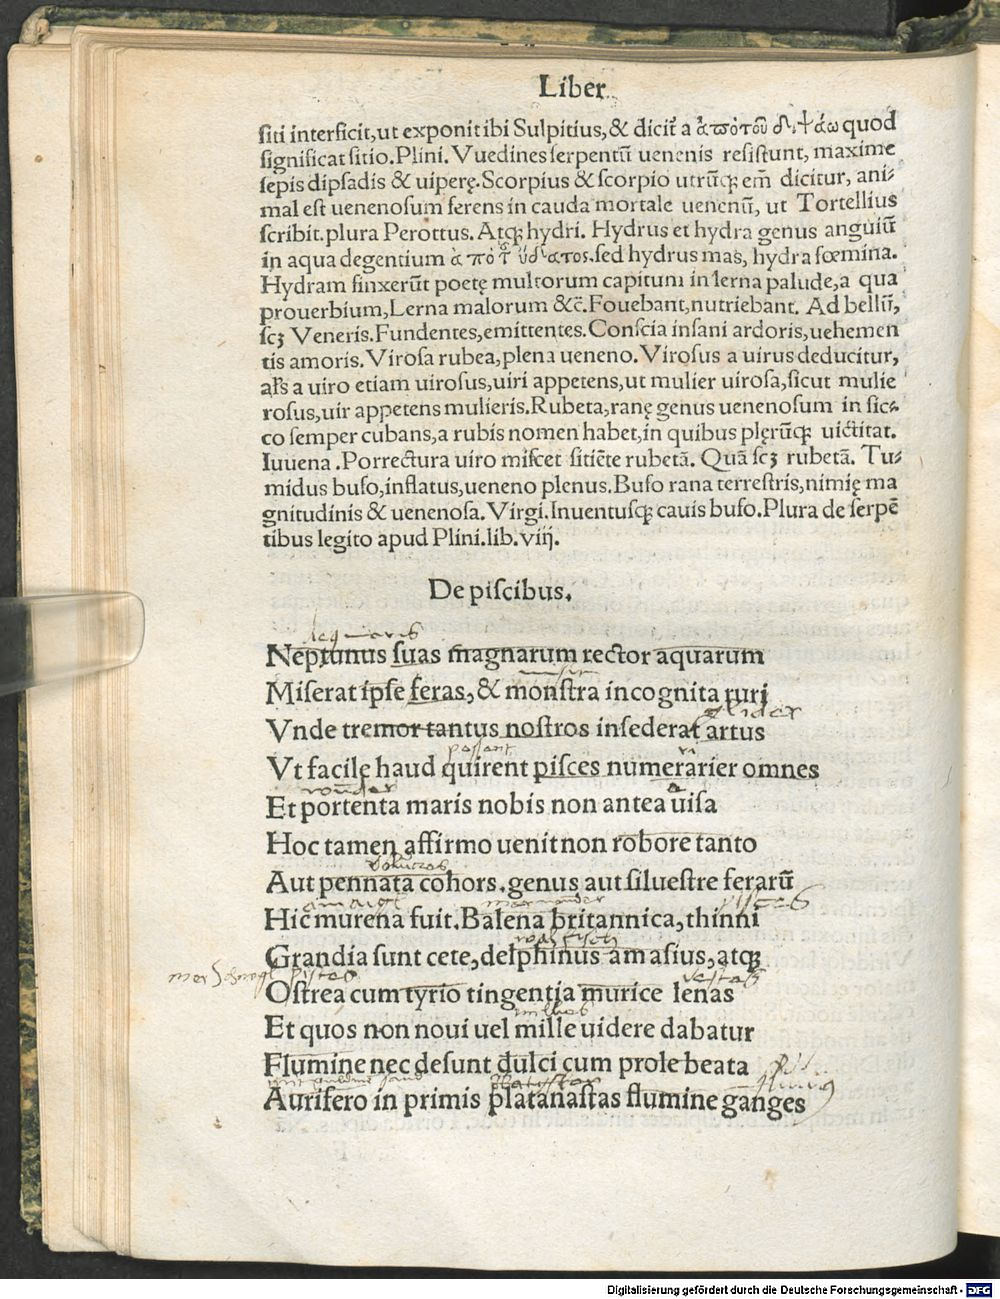 Liber
siti interficit,ut exponit ibi Sulpitius,& dicit̃ a ἀπὸ τοῦ διψάω quod
significat sitio.Plini.Vuedines serpentũ uenenis resistunt, maxime
sepis dipsadis & uiperę.Scorpius & scorpio utrũq; em̃ dicitur, ani⸗
mal est uenenosum ferens in cauda mortale uenenũ, ut Tortellius
scribit.plura Perottus. Atq; hydri. Hydrus et hydra genus anguiũ
in aqua degentium ἀπὸ τ͂ ὕδατος.sed hydrus mas, hydra fœmina.
Hydram finxerũt poetę multorum capitum in lerna palude,a qua
prouerbium,Lerna malorum &c̃.Fouebant,nutriebant. Ad bellũ,
scȝ Veneris.Fundentes,emittentes.Conscia insani ardoris,uehemen
tis amoris.Virosa rubea,plena ueneno.Virosus a uirus deducitur,
al̃s a uiro etiam uirosus,uiri appetens,ut mulier uirosa,sicut mulie
rosus,uir appetens mulieris.Rubeta,ranę genus uenenosum in sic⸗
co semper cubans,a rubis nomen habet,in quibus plęrũq; uictitat.
Iuuena.Porrectura uiro miscet sitiẽte rubetã. Quã scȝ rubetã. Tu⸗
midus bufo,inflatus,ueneno plenus.Bufo rana terrestris,nimię ma
gnitudinis & uenenosa.Virgi.Inuentusq; cauis bufo.Plura de serpẽ
tibus legito apud Plini.lib.viij.
De piscibus.
maris
Neptunus suas magnarum rector aquarum
Miserat ipse feras,& monstra incognita ruri
glider
Vnde tremor tantus nostros insederat artus
possent
Vt facile haud quirent pisces numerarier omnes
wunder
Et portenta maris nobis non antea uisa
Hoc tamen affirmo uenit non robore tanto
volucres
Aut pennata cohors.genus aut siluestre ferarũ
pisces
Hic murena fuit.Balena britannica,thinni
walfisch
Grandia sunt cete,delphinus amasius,atq;
vestes
Ostrea cum tyrio tingentia murice lenas
Et quos non noui uel mille uidere dabatur
Flumine nec desunt dulci cum prole beata
Aurifero in primis platanastas flumine ganges
Digitalisierung gefördert durch die Deutsche Forschungsgemeinschaft - DFG